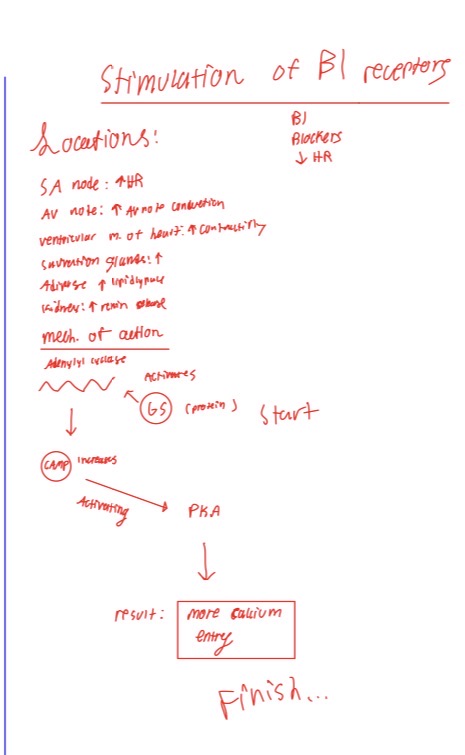 Stimulation of B1 receptors
B1
Blockers
↓ HR
Locations:
SA node: ↑HR
AV note: ↑ AV note conduction
ventricular m. of heart: ↑ contractility
glands: ↑
↑
Kidney: ↑ renin
mech. of action
Adenylyl cyclase
Activates
GS (protein)
Start
CAMP increases
Activating
PKA
result: more calcium
entry
Finish...